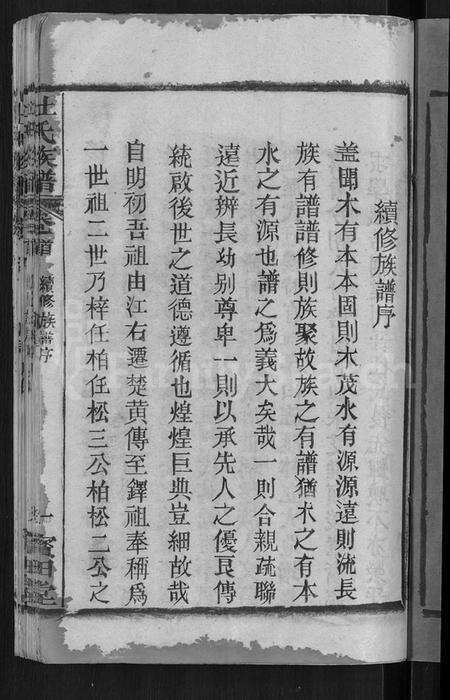 續修族譜序
蓋聞木有本本固則木茂水有源源遠則流長
族有譜譜修則族聚故族之有譜猶木之有本
水之有源也譜之爲義大矣哉一則合親疏聯
遠近辨長幼别尊卑一則以承先人之優良傳
統啟後世之道德遵循也煌煌巨典豈細故哉
自明初吾祖由江右遷楚黄傳至鐸祖奉稱爲
一世祖二世乃梓任柏任松三公柏松二公之
氏族譜
續修族譜序